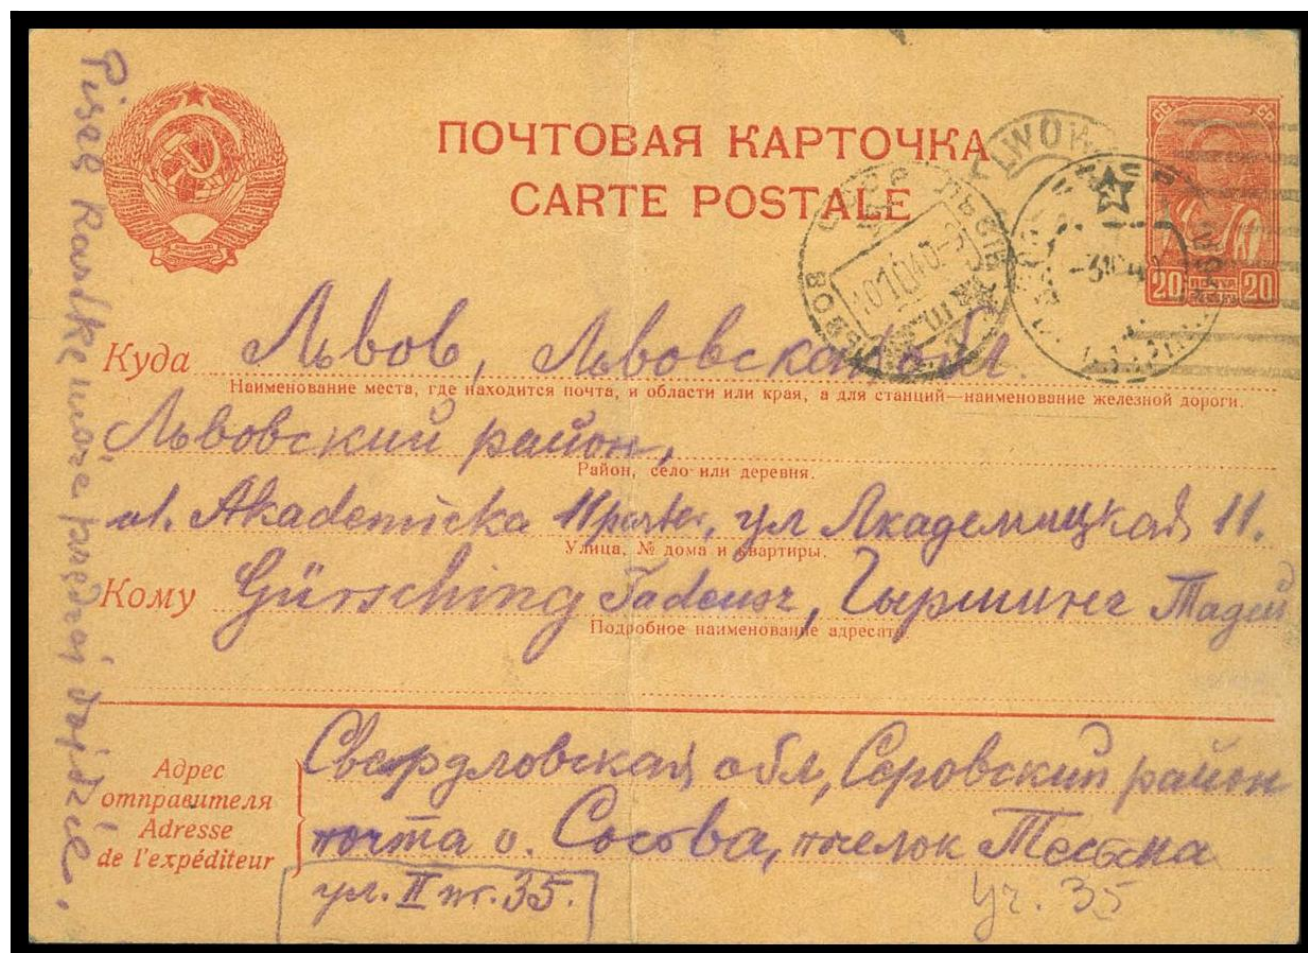 ПОЧТОВАЯ КАРТОЧКА
CARTE POSTALE
LWOW
20 ПОЧТА 20
Куда Львов, Львовская обл
Наименование места, где находится почта, и области или края, а для станций—наименование железной дороги.
Львовский район,
Район, село или деревня.
ul. Akademicka 11 parter, ул Академицкая 11.
Улица, № дома и квартиры.
Кому Gürsching Tadeusz, Гыршинг Тадей
Подробное наименование адресата.
Адрес
отправителя
Adresse
de l'expéditeur
Свердловская обл, Серовский район
почта о. Сосова, поселок Тесьма
ул. II нг. 35.
Уч. 35
Piszę Kartkę może prędzej dojdzie.